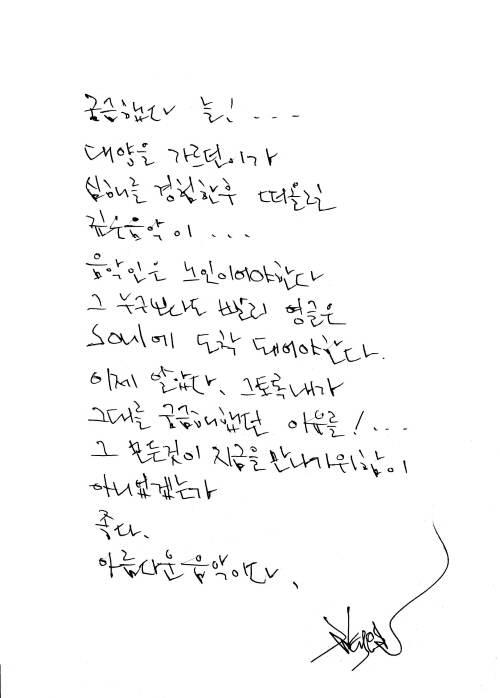 궁금했다 늘! ...
대양을 가르던이가
심해를 경험한후 떠올린
깊은음악이 ...
음악인은 노인이어야한다
그 누구보다도 빨리 영글은
Soul에 도착 돼어야한다.
이제 알았다. 그토록내가
그대를 궁금해했던 이유를! ...
그 모든것이 지금을 만나기위함이
아니었겠는가
좋다.
아름다운 음악이다.